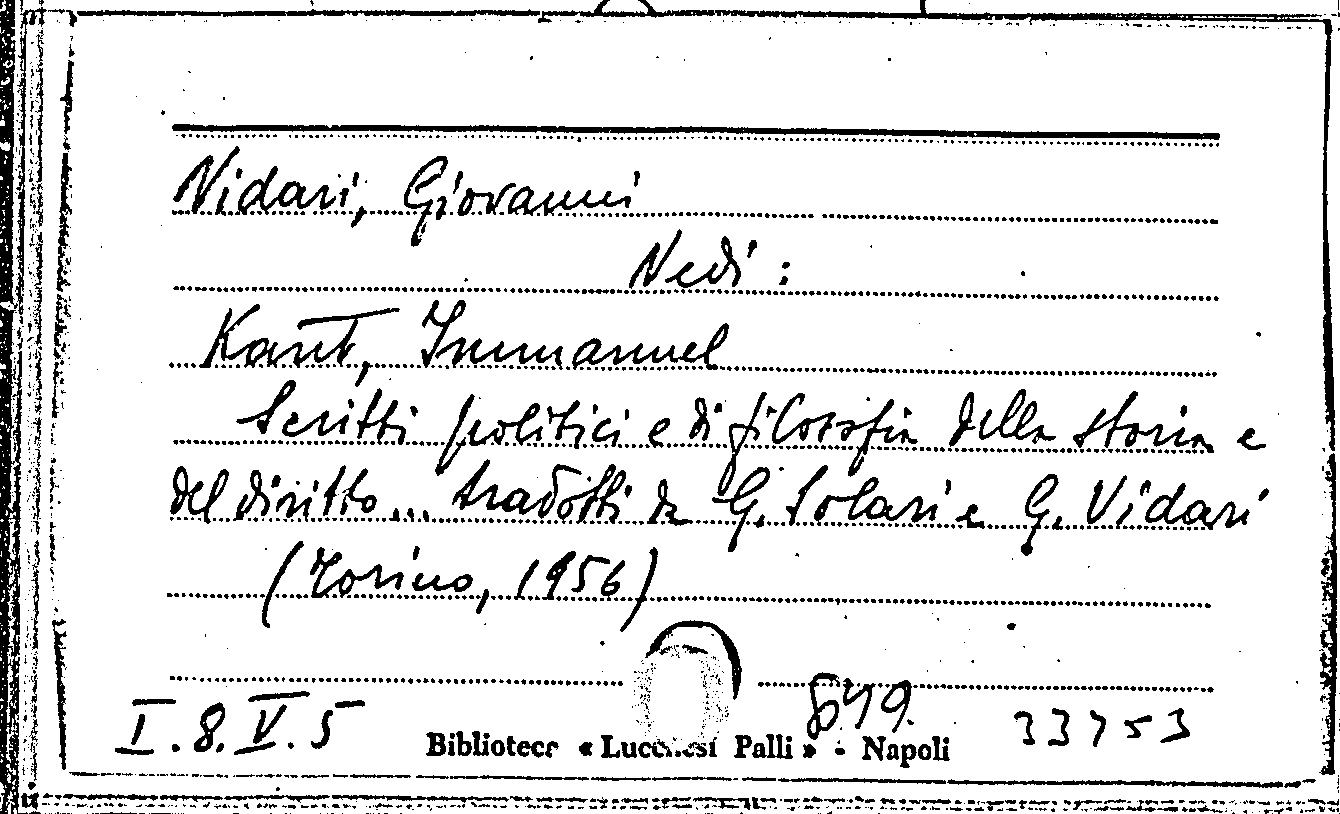 Vidari, Giovanni
Vedi :
Kant, Immanuel
Scritti politici e di filosofia della storia e
del diritto... tradotti da G. Solari e G. Vidari
(Torino, 1956)
I.8.V.5
649.
33753
Biblioteca « Lucchesi Palli » - Napoli